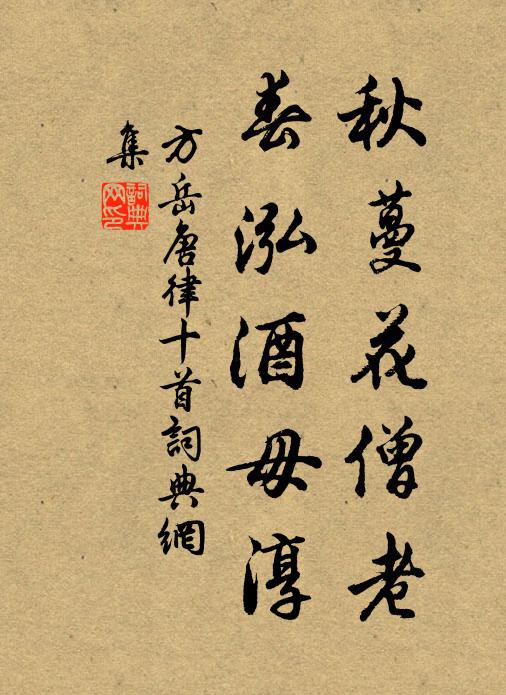 秋蔓花僧老
春泓酒毋淳
方岳唐律十首詞典網
集
詞典網印